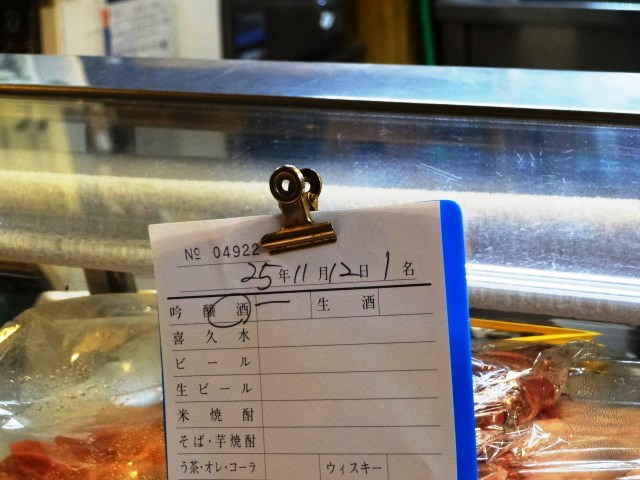 Nº 04922
25年11月12日 1名
吟醸酒 一 生酒
喜久水
ビール
生ビール
米焼酎
そば・芋焼酎
う茶・オレ・コーラ ウィスキー